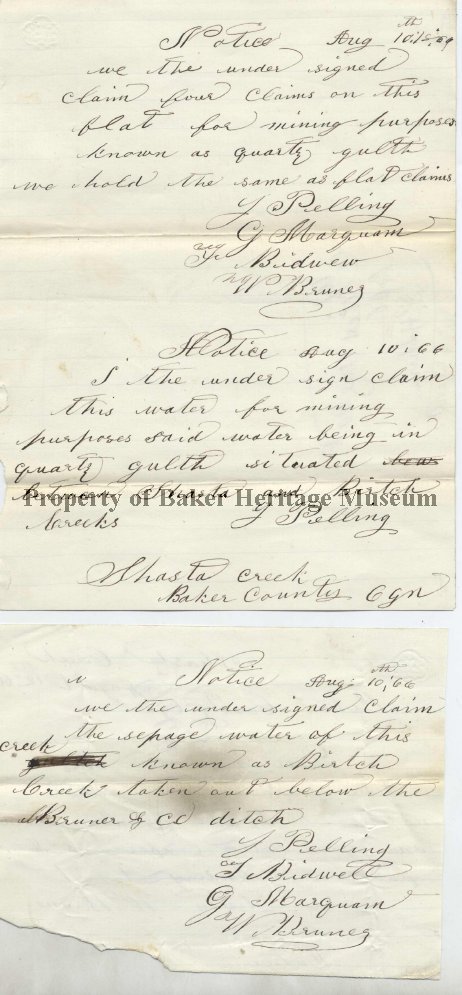 Notice Aug 10th
we the under signed
claim four claims on this
flat for mining purposes
known as quartz gulth
we hold the same as flat claims
J Pelling
G Marquam
T Bidwew
W Bruner
Notice Aug 10; 66
I the under sign claim
this water for mining
purposes said water being in
quartz gulth situated
between Shasta and Birtch
Creeks J Pelling
Property of Baker Heritage Museum
Shasta Creek
Baker County Ogn
Notice Aug. 10th, 66
we the under signed Claim
the sepage water of this
creek known as Birtch
Creek taken out below the
Bruner & Co ditch
J Pelling
T Bidwell
G Marquam
W Bruner